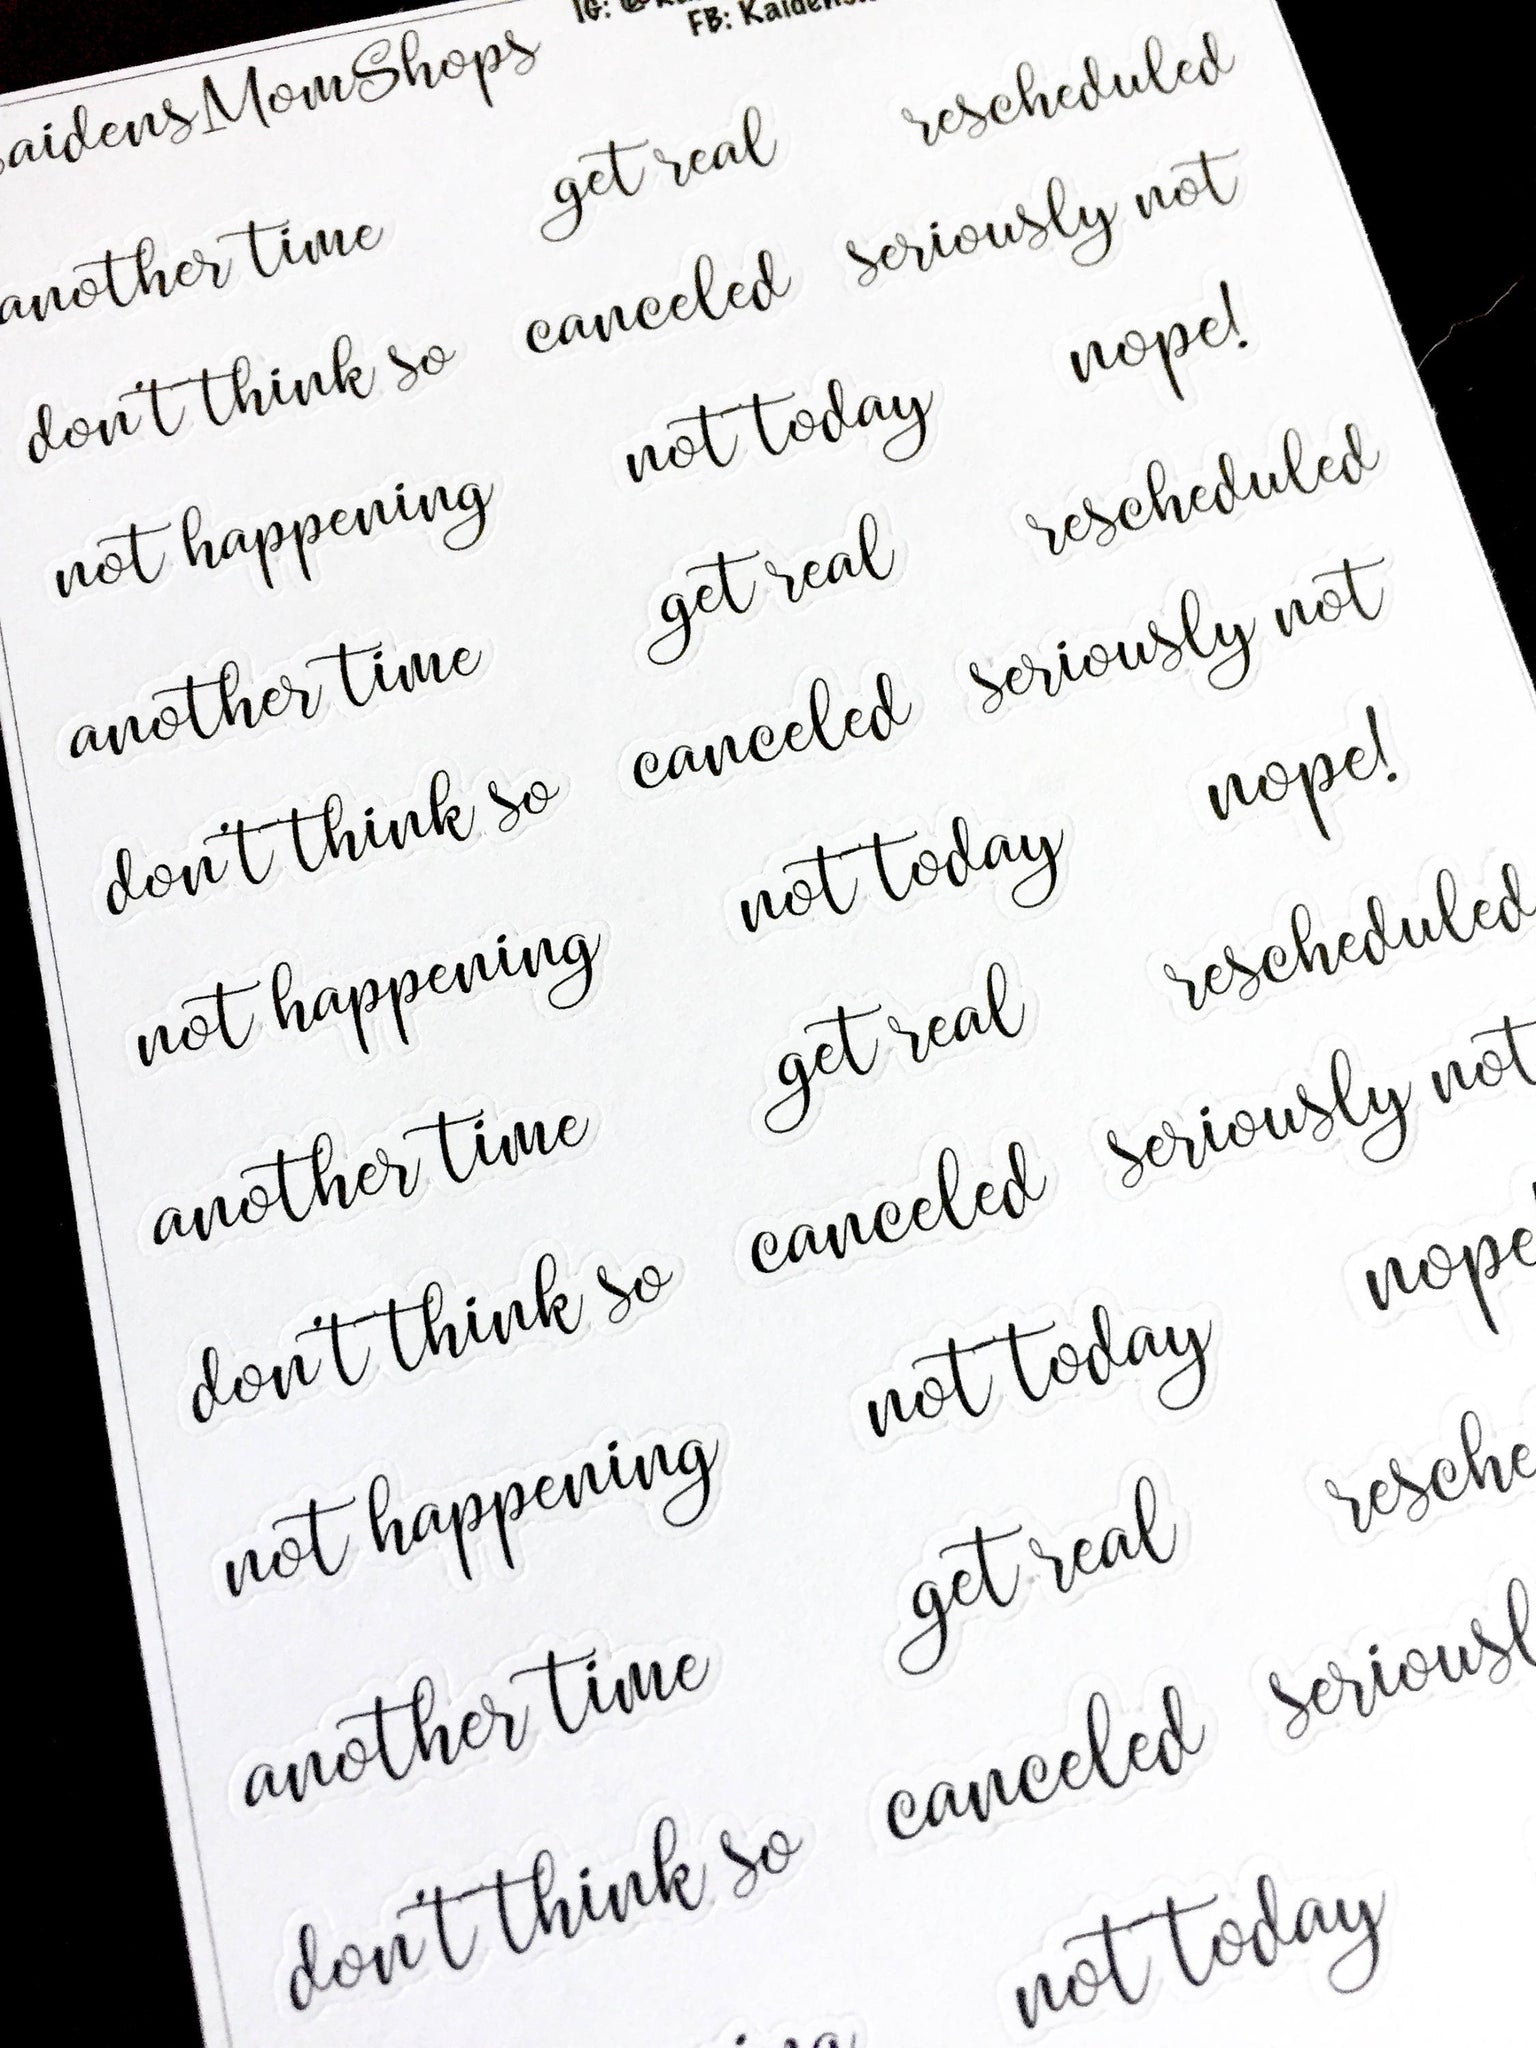 IG:
FB:
MomShops
another time get real rescheduled
don't think so canceled seriously not
not happening not today nope!
another time get real rescheduled
don't think so canceled seriously not
not happening not today nope!
another time get real rescheduled
don't think so canceled seriously not
not happening not today nope!
another time get real
don't think so canceled
not today